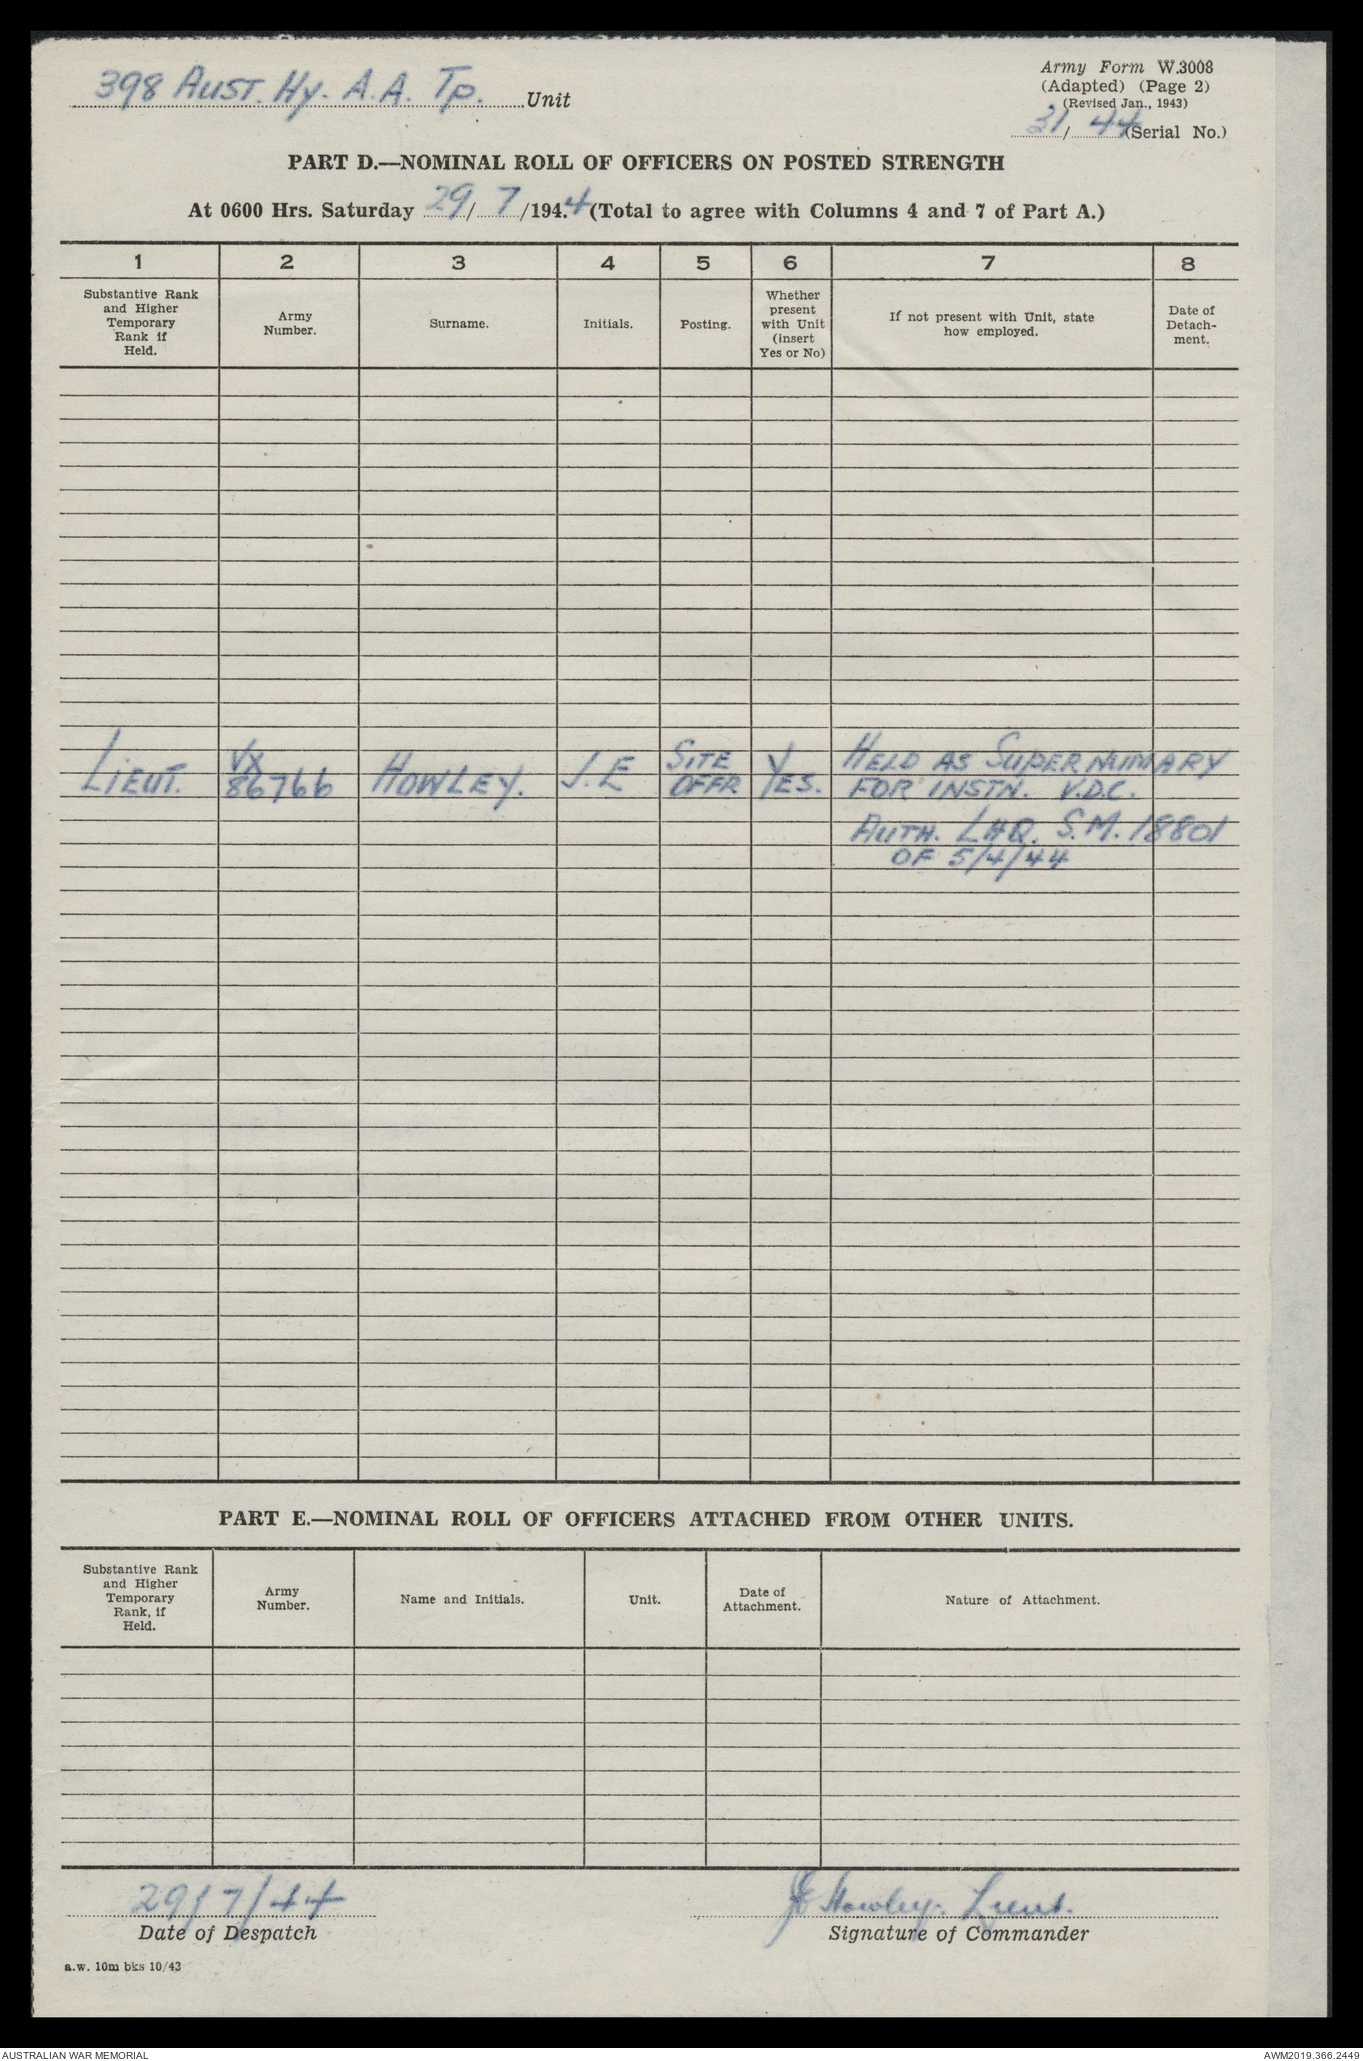 398 AUST. Hy. A.A. Tp. Unit
Army Form W.3008
(Adapted) (Page 2)
(Revised Jan., 1943)
31/44 (Serial No.)
PART D.—NOMINAL ROLL OF OFFICERS ON POSTED STRENGTH
At 0600 Hrs. Saturday 29/7/1944 (Total to agree with Columns 4 and 7 of Part A.)
1 2 3 4 5 6 7 8
Substantive Rank
and Higher
Temporary
Rank if
Held.
Army
Number.
Surname.
Initials.
Posting.
Whether
present
with Unit
(insert
Yes or No)
If not present with Unit, state
how employed.
Date of
Detach-
ment.
LIEUT.
VX
86766
HOWLEY.
J.E
SITE
OFFR
YES.
HELD AS SUPERNUMARY
FOR INSTN. V.D.C.
AUTH. LHQ. S.M. 18801
OF 5/4/44
PART E.—NOMINAL ROLL OF OFFICERS ATTACHED FROM OTHER UNITS.
Substantive Rank
and Higher
Temporary
Rank, if
Held.
Army
Number.
Name and Initials.
Unit.
Date of
Attachment.
Nature of Attachment.
29/7/44
Date of Despatch
JE Howley. Lieut.
Signature of Commander
a.w. 10m bks 10/43
AUSTRALIAN WAR MEMORIAL
AWM2019.366.2449